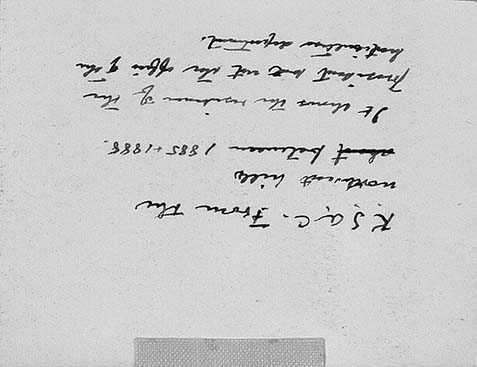 K.S.A.C. From the
northwest hill
about between 1885 + 1888.
It shows the residence of the
President but not the office of the
horticulture department.